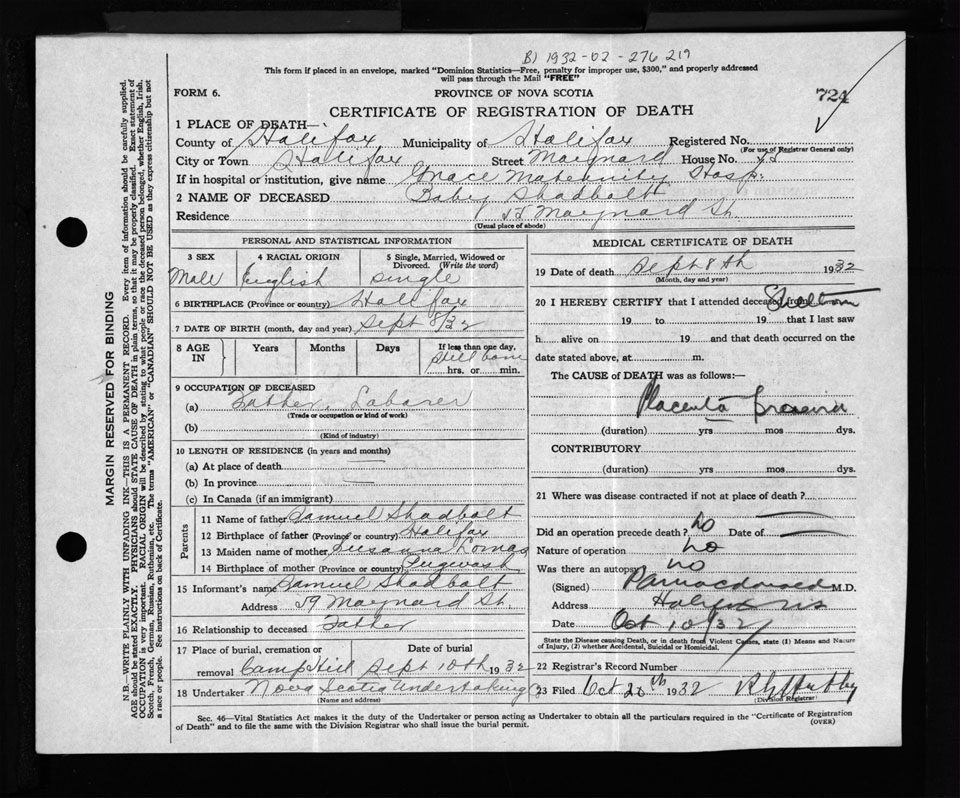 B) 1932-02-276 217
This form if placed in an envelope, marked "Dominion Statistics—Free, penalty for improper use, $300," and properly addressed
will pass through the Mail "FREE"
FORM 6. PROVINCE OF NOVA SCOTIA 724
CERTIFICATE OF REGISTRATION OF DEATH
1 PLACE OF DEATH—
County of Halifax Municipality of Halifax Registered No.
(For use of Registrar General only)
City or Town Halifax Street Maynard House No.
If in hospital or institution, give name Grace Maternity Hosp.
2 NAME OF DECEASED Baby Shadbolt
Residence Maynard St.
(Usual place of abode)
PERSONAL AND STATISTICAL INFORMATION
3 SEX 4 RACIAL ORIGIN 5 Single, Married, Widowed or Divorced. (Write the word)
Male English single
6 BIRTHPLACE (Province or country) Halifax
7 DATE OF BIRTH (month, day and year) Sept 8/32
8 AGE IN Years Months Days If less than one day,
Still born
hrs. or min.
9 OCCUPATION OF DECEASED
(a) Father, Laborer
(Trade or occupation or kind of work)
(b)
(Kind of industry)
10 LENGTH OF RESIDENCE (in years and months)
(a) At place of death
(b) In province
(c) In Canada (if an immigrant)
Parents
11 Name of father Samuel Shadbolt
12 Birthplace of father (Province or country) Halifax
13 Maiden name of mother Susanna Lomas
14 Birthplace of mother (Province or country) Pugwash
15 Informant's name Samuel Shadbolt
Address 59 Maynard St.
16 Relationship to deceased Father
17 Place of burial, cremation or Date of burial
removal Camp Hill Sept 10th 1932
18 Undertaker Nova Scotia Undertaking Co
(Name and address)
MEDICAL CERTIFICATE OF DEATH
19 Date of death Sept 8th 1932
(Month, day and year)
20 I HEREBY CERTIFY that I attended deceased from Stillborn
19 to 19 that I last saw
h alive on 19 and that death occurred on the
date stated above, at m.
The CAUSE of DEATH was as follows:—
Placenta Praevia
(duration) yrs mos dys.
CONTRIBUTORY
(duration) yrs mos dys.
21 Where was disease contracted if not at place of death?
Did an operation precede death? No Date of
Nature of operation No
Was there an autopsy No
(Signed) M.D.
Address Halifax NS
Date Oct 10/32
State the Disease causing Death, or in death from Violent Causes, state (1) Means and Nature
of Injury, (2) whether Accidental, Suicidal or Homicidal.
22 Registrar's Record Number
23 Filed Oct 20th 1932
(Division Registrar)
Sec. 46—Vital Statistics Act makes it the duty of the Undertaker or person acting as Undertaker to obtain all the particulars required in the "Certificate of Registration
of Death" and to file the same with the Division Registrar who shall issue the burial permit. (OVER)
MARGIN RESERVED FOR BINDING
N.B.—WRITE PLAINLY WITH UNFADING INK—THIS IS A PERMANENT RECORD. Every item of information should be carefully supplied.
AGE should be stated EXACTLY. PHYSICIANS should STATE CAUSE OF DEATH in plain terms, so that it may be properly classified. Exact statement of
OCCUPATION is very important. RACIAL ORIGIN will be described by stating to what people or race the deceased person belonged, whether English, Irish,
Scotch, French, German, Russian, Ruthenian, etc. The terms "AMERICAN" or "CANADIAN" SHOULD NOT BE USED as they express citizenship but not
a race or people. See instructions on back of Certificate.